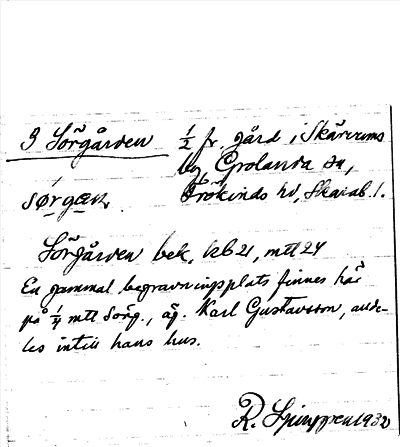 3 Sörgården
1/2 fr. gård i Skärvums
by, Grolanda sn,
Frökinds hd, Skarab. l.
sørgæɳ
Sörgården bek, kb 21, mtl 24
En gammal begravningsplats finnes här
på 1/4 mtl Sörg., äg. Karl Gustavsson, alde-
les intill hans hus.
R. Ljunggren 1932